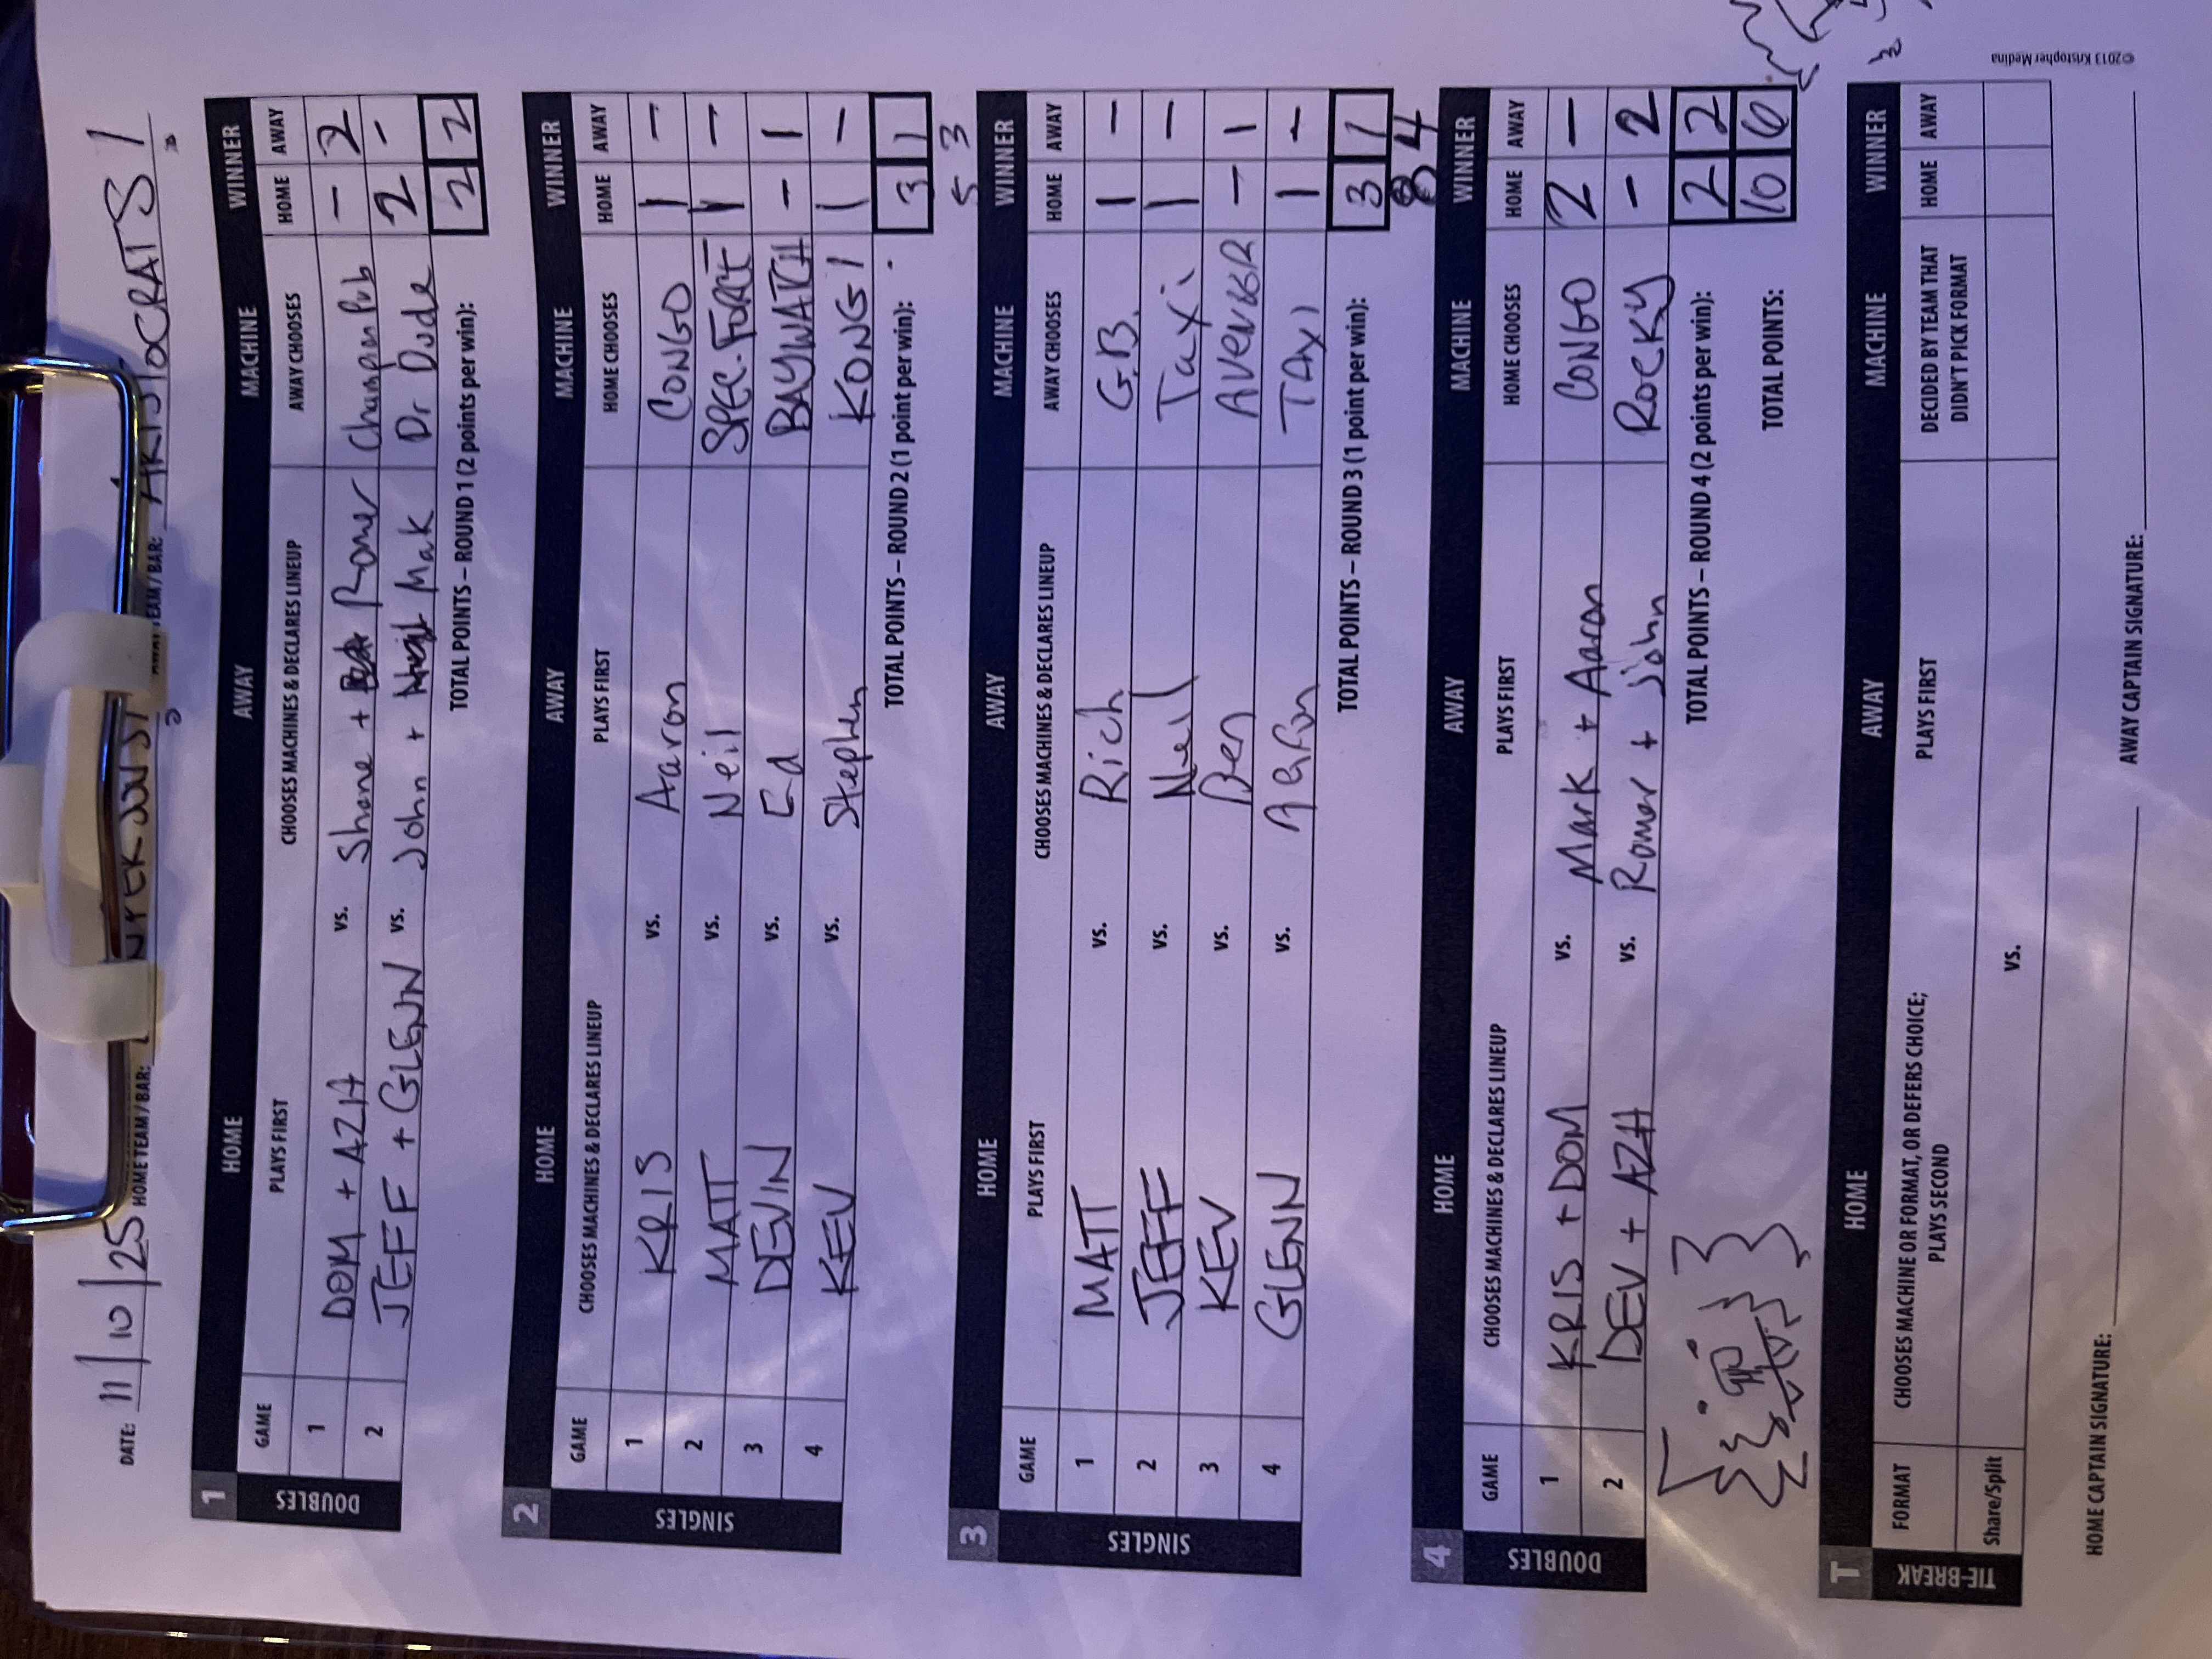 DATE: 11/10/25 HOME TEAM / BAR: TEAM / BAR: ARISTOCRATS 1
1 HOME AWAY MACHINE WINNER
GAME PLAYS FIRST CHOOSES MACHINES & DECLARES LINEUP AWAY CHOOSES HOME AWAY
DOUBLES
1 DOM + AZIA vs. Shane + Romer Champ Pub - 2
2 JEFF + GLENN vs. John + Mak Dr Dude 2 -
TOTAL POINTS – ROUND 1 (2 points per win): 2 2
2 HOME AWAY MACHINE WINNER
GAME CHOOSES MACHINES & DECLARES LINEUP PLAYS FIRST HOME CHOOSES HOME AWAY
SINGLES
1 KRIS vs. Aaron CONGO 1 -
2 MATT vs. Neil SPEC-FORCE 1 -
3 DEVIN vs. Ed BAYWATCH - 1
4 KEV vs. Stephen KONG 1 1 -
TOTAL POINTS – ROUND 2 (1 point per win): 3 1
5 3
3 HOME AWAY MACHINE WINNER
GAME PLAYS FIRST CHOOSES MACHINES & DECLARES LINEUP AWAY CHOOSES HOME AWAY
SINGLES
1 MATT vs. Rich G.B. 1 -
2 JEFF vs. Neil Taxi 1 -
3 KEV vs. Ben AVENGER - 1
4 GLENN vs. TAXI 1 -
TOTAL POINTS – ROUND 3 (1 point per win): 3 1
8 4
4 HOME AWAY MACHINE WINNER
GAME CHOOSES MACHINES & DECLARES LINEUP PLAYS FIRST HOME CHOOSES HOME AWAY
DOUBLES
1 KRIS + DOM vs. Mark + Aaron CONGO 2 -
2 DEV + AZIA vs. Romer + John ROCKY - 2
TOTAL POINTS – ROUND 4 (2 points per win): 2 2
TOTAL POINTS: 10 6
T HOME AWAY MACHINE WINNER
FORMAT CHOOSES MACHINE OR FORMAT, OR DEFERS CHOICE; PLAYS SECOND PLAYS FIRST DECIDED BY TEAM THAT DIDN'T PICK FORMAT HOME AWAY
TIE-BREAK
Share/Split vs.
HOME CAPTAIN SIGNATURE: AWAY CAPTAIN SIGNATURE:
©2013 Kristopher Medina